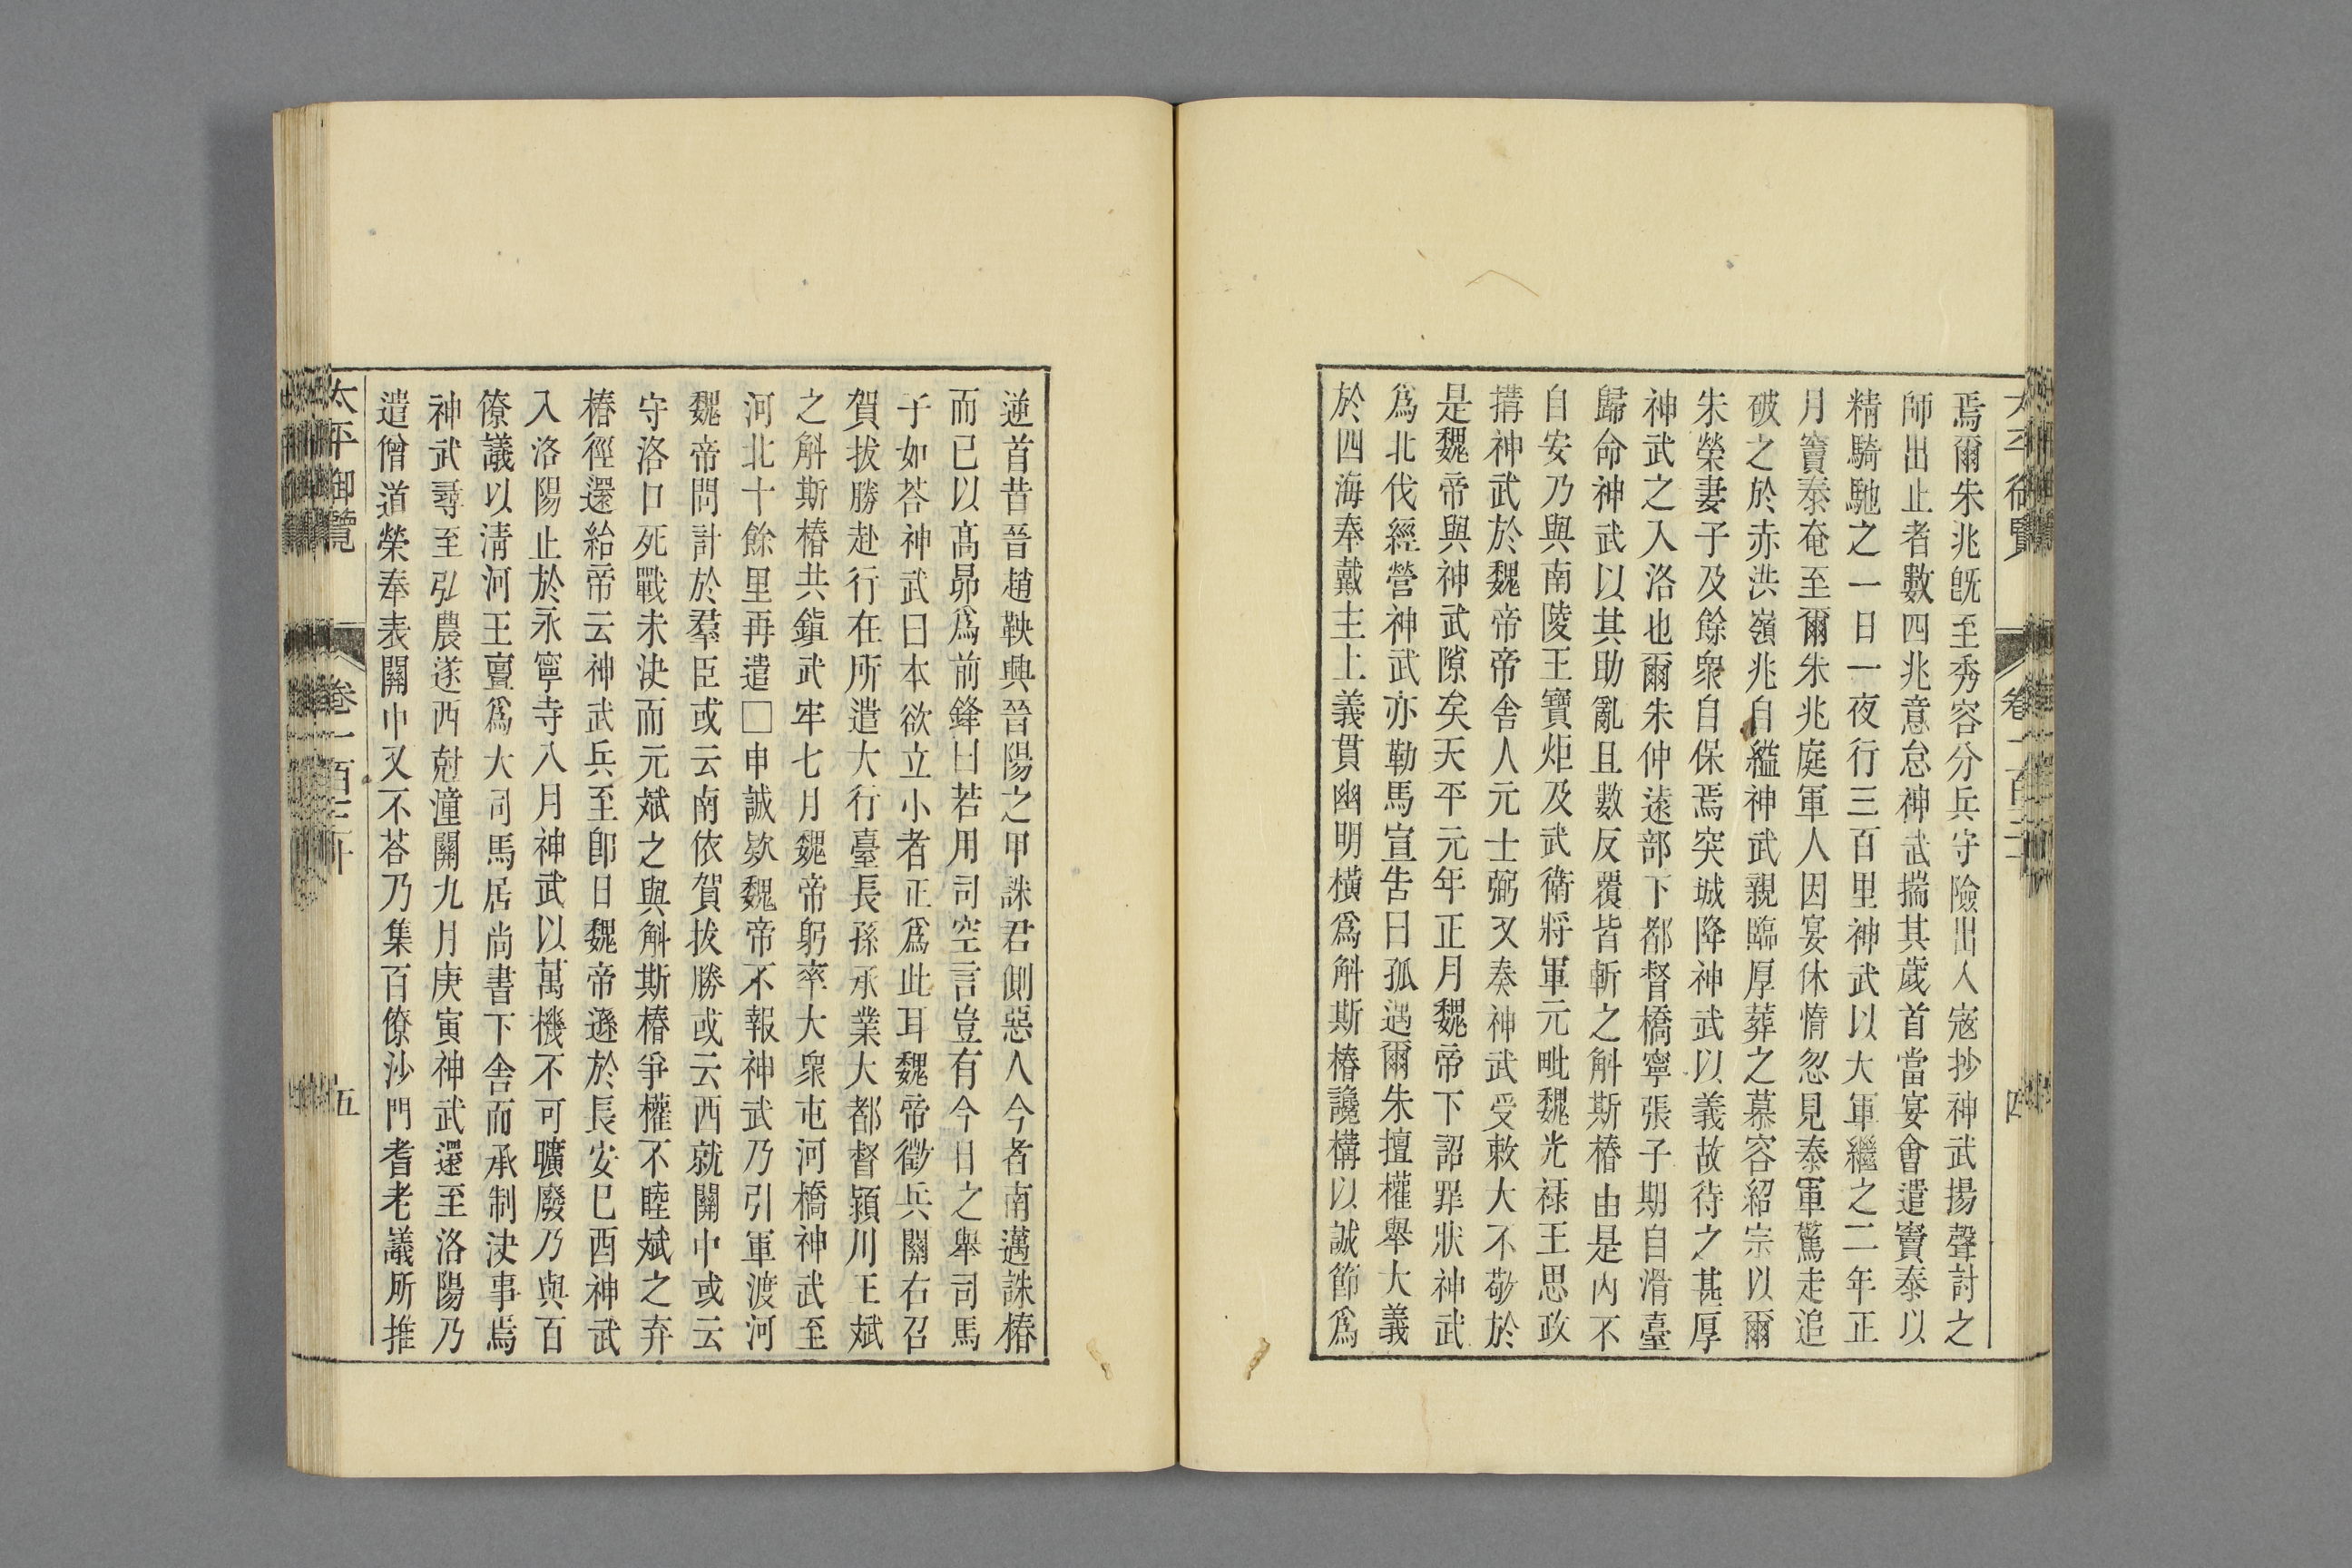 太平御覽 卷一百三十 四
焉爾朱兆旣至秀容分兵守險出入寇抄神武揚聲討之
師出止者數四兆意怠神武揣其歲首當宴會遣竇泰以
精騎馳之一日一夜行三百里神武以大軍繼之二年正
月竇泰奄至爾朱兆庭軍人因宴休惰忽見泰軍驚走追
破之於赤洪嶺兆自縊神武親臨厚葬之慕容紹宗以爾
朱榮妻子及餘衆自保焉突城降神武以義故待之甚厚
神武之入洛也爾朱仲遠部下都督橋寧張子期自滑臺
歸命神武以其助亂且數反覆皆斬之斛斯椿由是內不
自安乃與南陵王寶炬及武衛將軍元毗魏光祿王思政
搆神武於魏帝帝舍人元士弼又奏神武受敕大不敬於
是魏帝與神武隙矣天平元年正月魏帝下詔罪狀神武
爲北伐經營神武亦勒馬宣告曰孤遇爾朱擅權舉大義
於四海奉戴主上義貫幽明橫爲斛斯椿讒構以誠節爲
逆首昔晉趙鞅興晉陽之甲誅君側惡人今者南邁誅椿
而已以高昂爲前鋒曰若用司空言豈有今日之舉司馬
子如荅神武曰本欲立小者正爲此耳魏帝徵兵關右召
賀拔勝赴行在所遣大行臺長孫承業大都督潁川王斌
之斛斯椿共鎮武牢七月魏帝躬率大衆屯河橋神武至
河北十餘里再遣□申誠欵魏帝不報神武乃引軍渡河
魏帝問計於羣臣或云南依賀拔勝或云西就關中或云
守洛口死戰未決而元斌之與斛斯椿爭權不睦斌之弃
椿徑還給帝云神武兵至卽日魏帝遜於長安巳酉神武
入洛陽止於永寧寺八月神武以萬機不可曠廢乃與百
僚議以淸河王亶爲大司馬居尚書下舍而承制決事焉
神武尋至弘農遂西尅潼關九月庚寅神武還至洛陽乃
遣僧道榮奉表關中又不荅乃集百僚沙門耆老議所推
太平御覽 卷一百三十 五